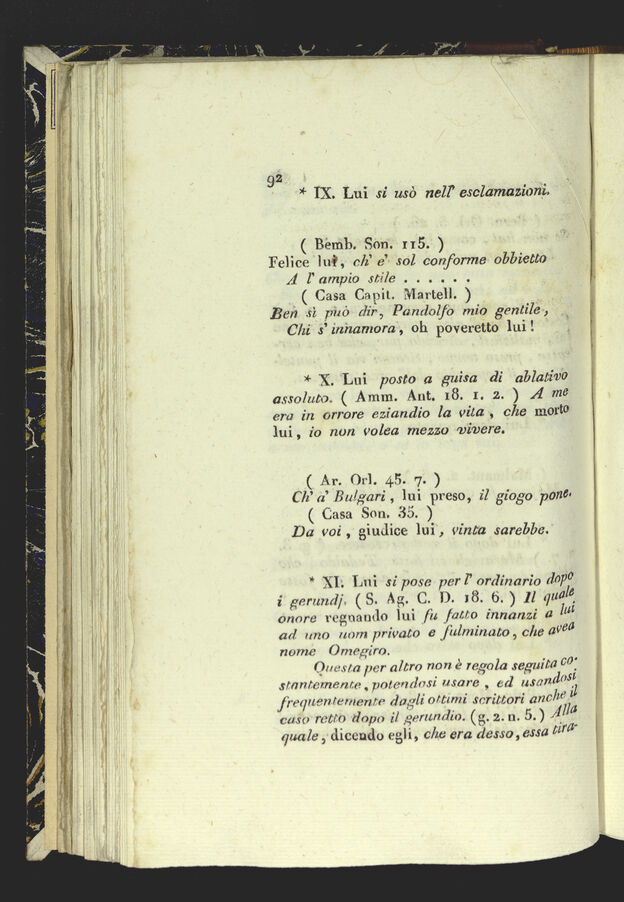 92
* IX. Lui si usò nell' esclamazioni.
( Bemb. Son. 115. )
Felice lui, ch' e' sol conforme obbietto
A l' ampio stile . . . . . .
( Casa Capit. Martell. )
Ben sì può dir, Pandolfo mio gentile,
Chi s' innamora, oh poveretto lui!
* X. Lui posto a guisa di ablativo
assoluto. ( Amm. Ant. 18. 1. 2. ) A me
era in orrore eziandio la vita, che morto
lui, io non volea mezzo vivere.
( Ar. Orl. 45. 7. )
Ch' a' Bulgari, lui preso, il giogo pone.
( Casa Son. 35. )
Da voi, giudice lui, vinta sarebbe.
* XI. Lui si pose per l' ordinario dopo
i gerundj. ( S. Ag. C. D. 18. 6. ) Il quale
onore regnando lui fu fatto innanzi a lui
ad uno uom privato e fulminato, che avea
nome Omegiro.
Questa per altro non è regola seguita co-
stantemente, potendosi usare, ed usandosi
frequentemente dagli ottimi scrittori anche il
caso retto dopo il gerundio. (g. 2. n. 5.) Alla
quale, dicendo egli, che era desso, essa tira-